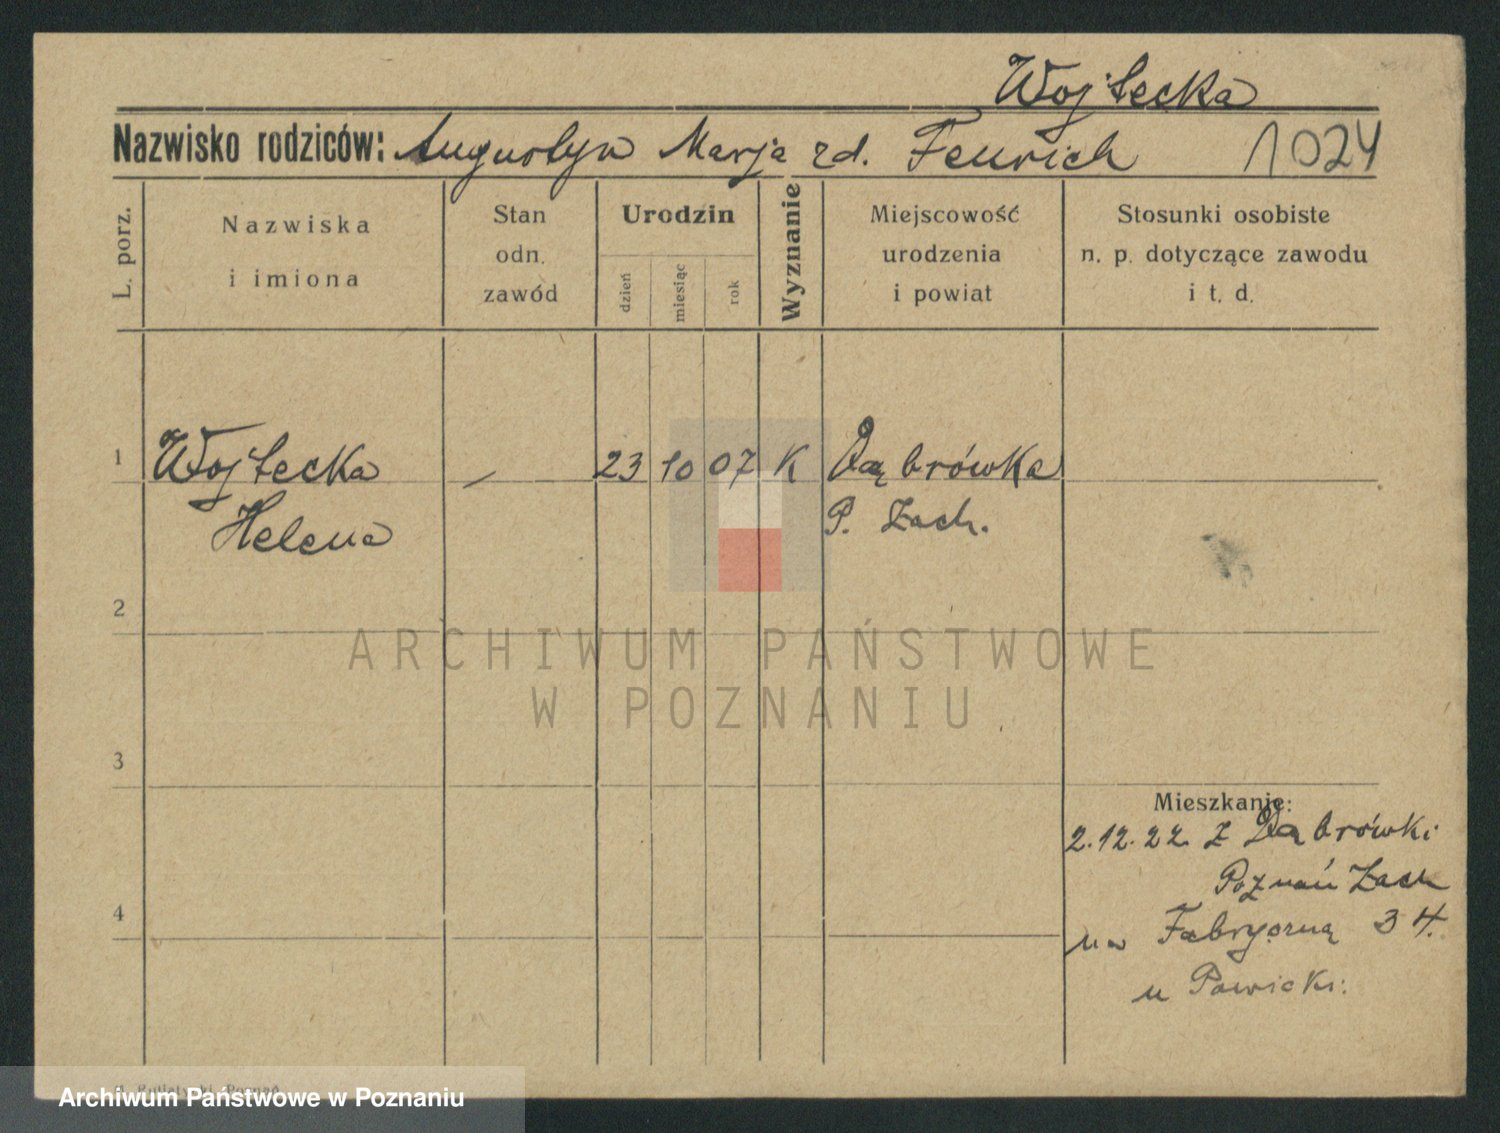 Wojtecka
Nazwisko rodziców: Augustyn Marja zd. Feurich 1024
L. porz.
Nazwiska
i imiona
Stan
odn.
zawód
Urodzin
dzień
miesiąc
rok
Wyznanie
Miejscowość
urodzenia
i powiat
Stosunki osobiste
n. p. dotyczące zawodu
i t. d.
1 Wojtecka - 23 10 07 K Dąbrówka
Helena P. Zach.
2
ARCHIWUM PAŃSTWOWE
W POZNANIU
3
Mieszkanie:
2.12.22. z Dąbrówki
Poznań Zach
4
na Fabryczną 34.
u
Poznań
Archiwum Państwowe w Poznaniu